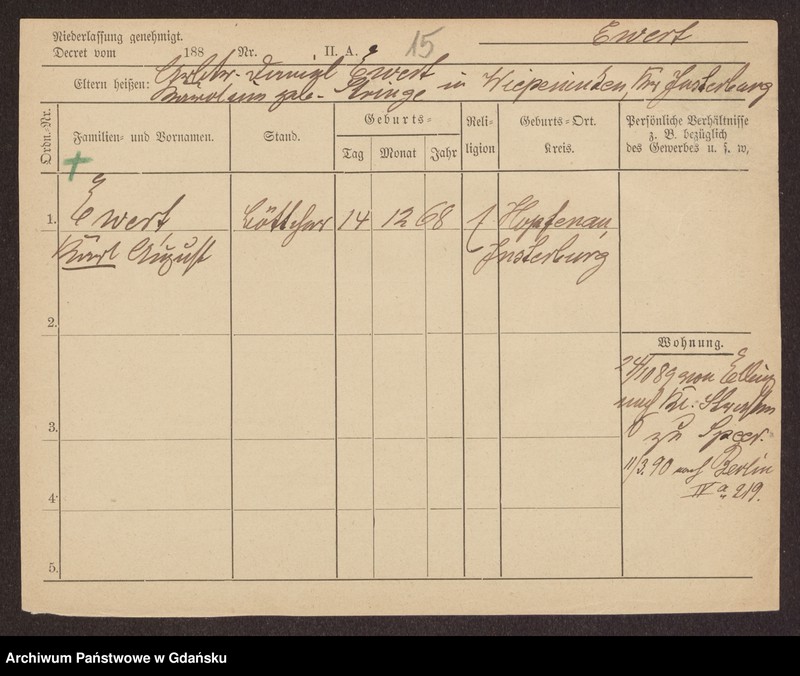 Niederlassung genehmigt.
Decret vom 188 Nr. II. A.
15
Ewert
Eltern heißen: Arbtr. Daniel Ewert
Karoline geb. in Kr. Insterburg
Ordn.-Nr.
Familien- und Vornamen.
Stand.
Geburts-
Tag Monat Jahr
Reli-
gion
Geburts-Ort.
Kreis.
Persönliche Verhältnisse
z. B. bezüglich
des Gewerbes u. s. w,
1. Ewert Böttcher 14 12 68 Hopfenau,
Karl August Insterburg
2.
Wohnung.
24/10 89 von Elbing
nach Kl:
zu Speer.
3.
11/3. 90 nach Berlin
IV a 219.
4.
5.
Archiwum Państwowe w Gdańsku